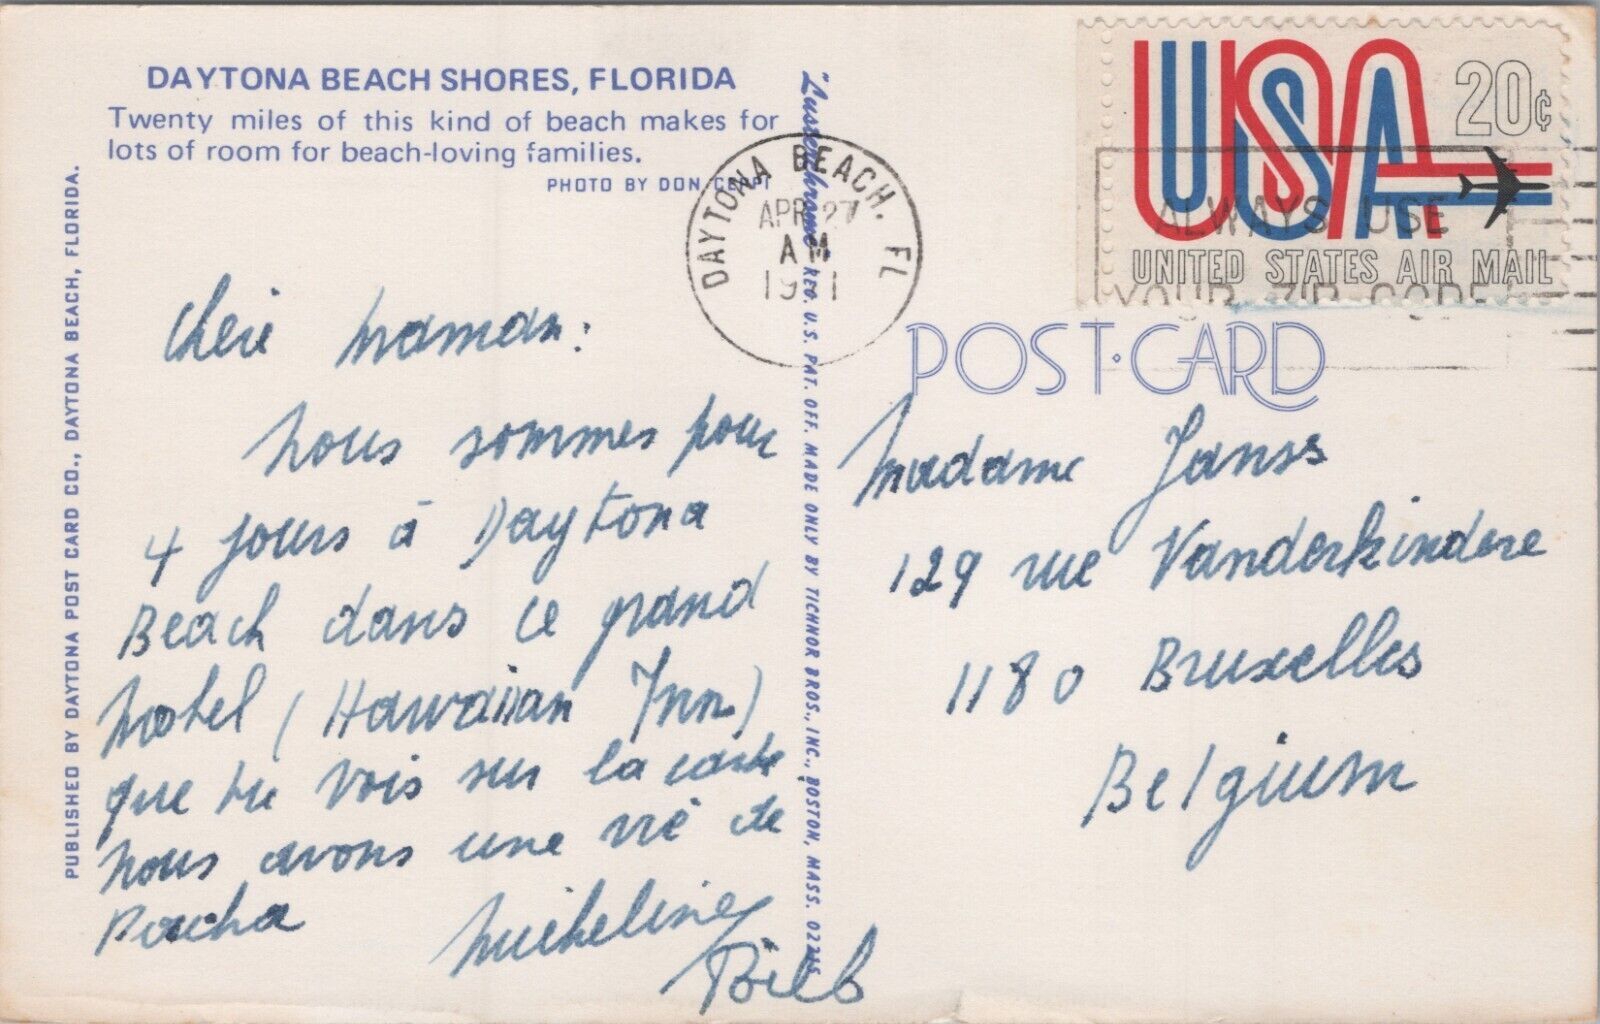 DAYTONA BEACH SHORES, FLORIDA
Twenty miles of this kind of beach makes for
lots of room for beach-loving families.
PHOTO BY DON CERPI
PUBLISHED BY DAYTONA POST CARD CO., DAYTONA BEACH, FLORIDA.
"Lusterchrome" REG. U.S. PAT. OFF. MADE ONLY BY TICHNOR BROS., INC., BOSTON, MASS. 02215
DAYTONA BEACH, FL
APR 27
AM
1971
USA 20c
UNITED STATES AIR MAIL
ALWAYS USE
YOUR ZIP CODE
POST CARD
Chère Maman:
Nous sommes pour
4 jours à Daytona
Beach dans ce grand
hotel (Hawaiian Inn)
que tu vois sur la carte
Nous avons une vie de
Pacha
Micheline
Madame Janss
129 rue Vanderkindere
1180 Bruxelles
Belgium